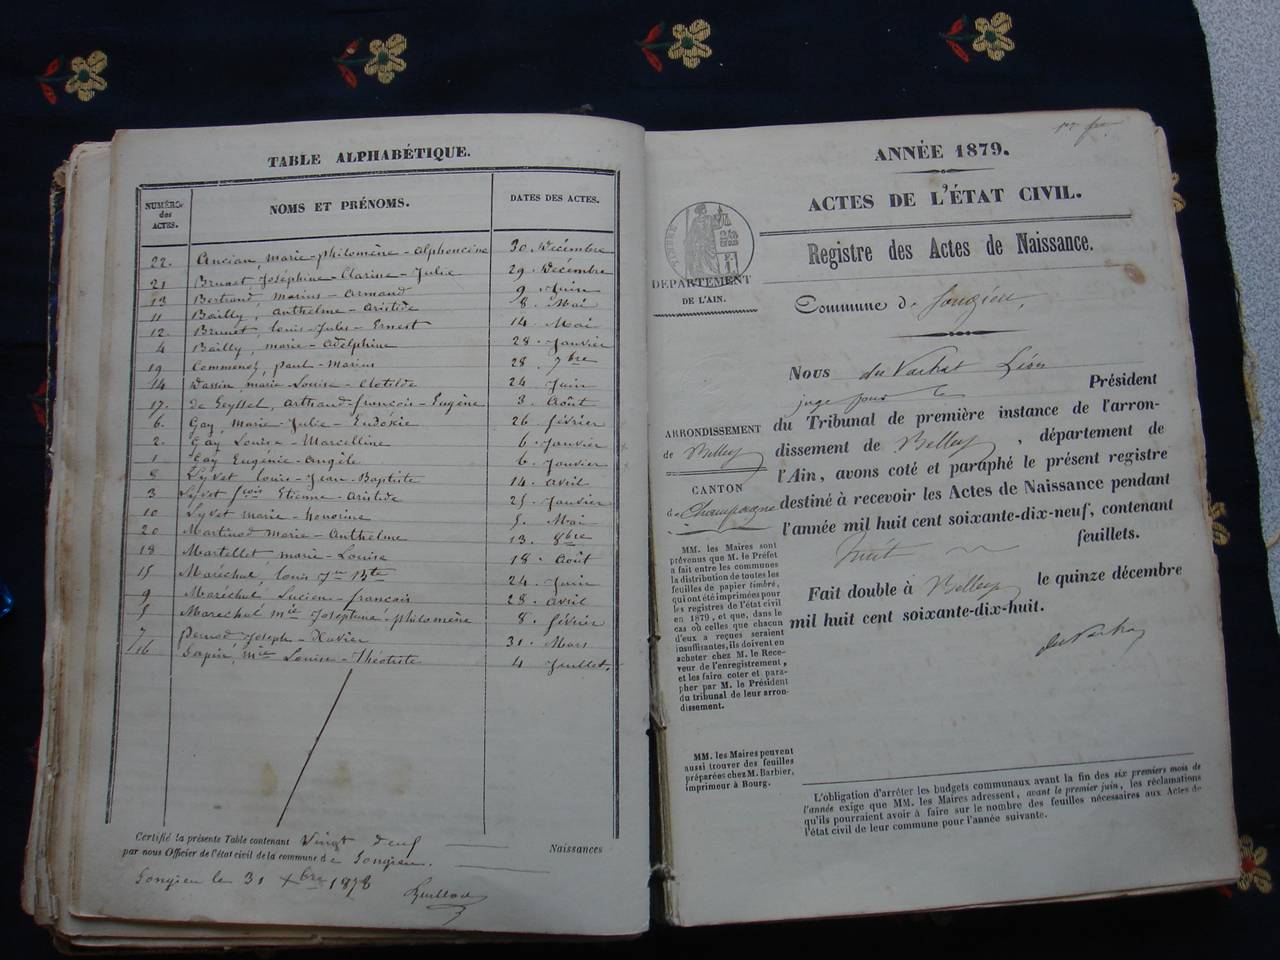 TABLE ALPHABÉTIQUE.
NUMÉROS des ACTES. NOMS ET PRÉNOMS. DATES DES ACTES.
22. Ancian, marie-philomène-alphoncine 30. Décembre
21 Brunet, Joséphine-Clarine-Julie 29. Décembre
13 Bertrand, marius-armand 9. Juin
11 Bailly, anthelme-aristide 8. Mai
12. Brunet, louis-Jules-Ernest 14. Mai
4 Bailly, marie-adelphine 28. Janvier
19 paul-marius 28. 7bre
14 Dassin, marie-Louise-Clotilde 24 Juin
17. de Seyssel, arthaud-françois-Eugène 3. Août
6. Gay, marie-Julie-Eudoxie 26 février
2. Gay Louise-Marcelline 6. Janvier
1 Gay Eugénie-angèle 6 Janvier
8 Lyvet louis-Jean-Baptiste 14. avril
3 Lyvet fçois Etienne-aristide 25. Janvier
10 Lyvet marie-honorine 5. Mai
20 Martinod marie-anthelme 13. 8bre
18 Martellet marie-Louise 18. Août
15 Maréchal, louis Jn Bte 24. Juin
9 Maréchal Lucien-francois 28. avril
5 Maréchal mie Joséphine-philomène 8. février
7 Pernod Joseph-Xavier 31. Mars
16 mie Louise-Théotiste 4 Juillet.
Certifié la présente Table contenant Vingt deuf Naissances
par nous Officier de l'état civil de la commune de Songieu.
Songieu le 31 Xbre 1878
Guillod
1er f
ANNÉE 1879.
ACTES DE L'ÉTAT CIVIL.
Registre des Actes de Naissance.
TIMBRE
DÉPARTEMENT
DE L'AIN.
Commune de Songieu,
Nous du Varhat Léon
juge pour le Président
du Tribunal de première instance de l'arron-
dissement de Belley, département de
l'Ain, avons coté et paraphé le présent registre
destiné à recevoir les Actes de Naissance pendant
l'année mil huit cent soixante-dix-neuf, contenant
huit feuillets.
Fait double à Belley le quinze décembre
mil huit cent soixante-dix-huit.
ARRONDISSEMENT
de Belley
CANTON
de Champagne
MM. les Maires sont
prévenus que M. le Préfet
a fait entre les communes
la distribution de toutes les
feuilles de papier timbré,
qui ont été imprimées pour
les registres de l'état civil
en 1879, et que, dans le
cas où celles que chacun
d'eux a reçues seraient
insuffisantes, ils doivent en
acheter chez M. le Rece-
veur de l'enregistrement,
et les faire coter et para-
pher par M. le Président
du tribunal de leur arron-
dissement.
MM. les Maires peuvent
aussi trouver des feuilles
préparées chez M. Barbier,
imprimeur à Bourg.
L'obligation d'arrêter les budgets communaux avant la fin des six premiers mois de
l'année exige que MM. les Maires adressent, avant le premier juin, les réclamations
qu'ils pourraient avoir à faire sur le nombre des feuilles nécessaires aux Actes de
l'état civil de leur commune pour l'année suivante.